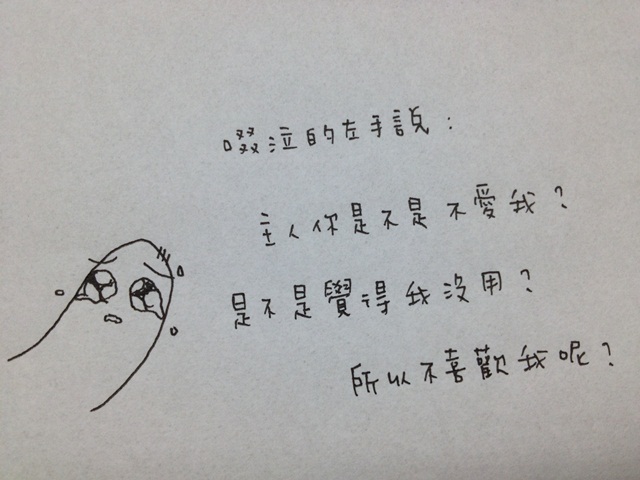 啜泣的左手說：
主人你是不是不愛我？
是不是覺得我沒用？
所以不喜歡我呢？